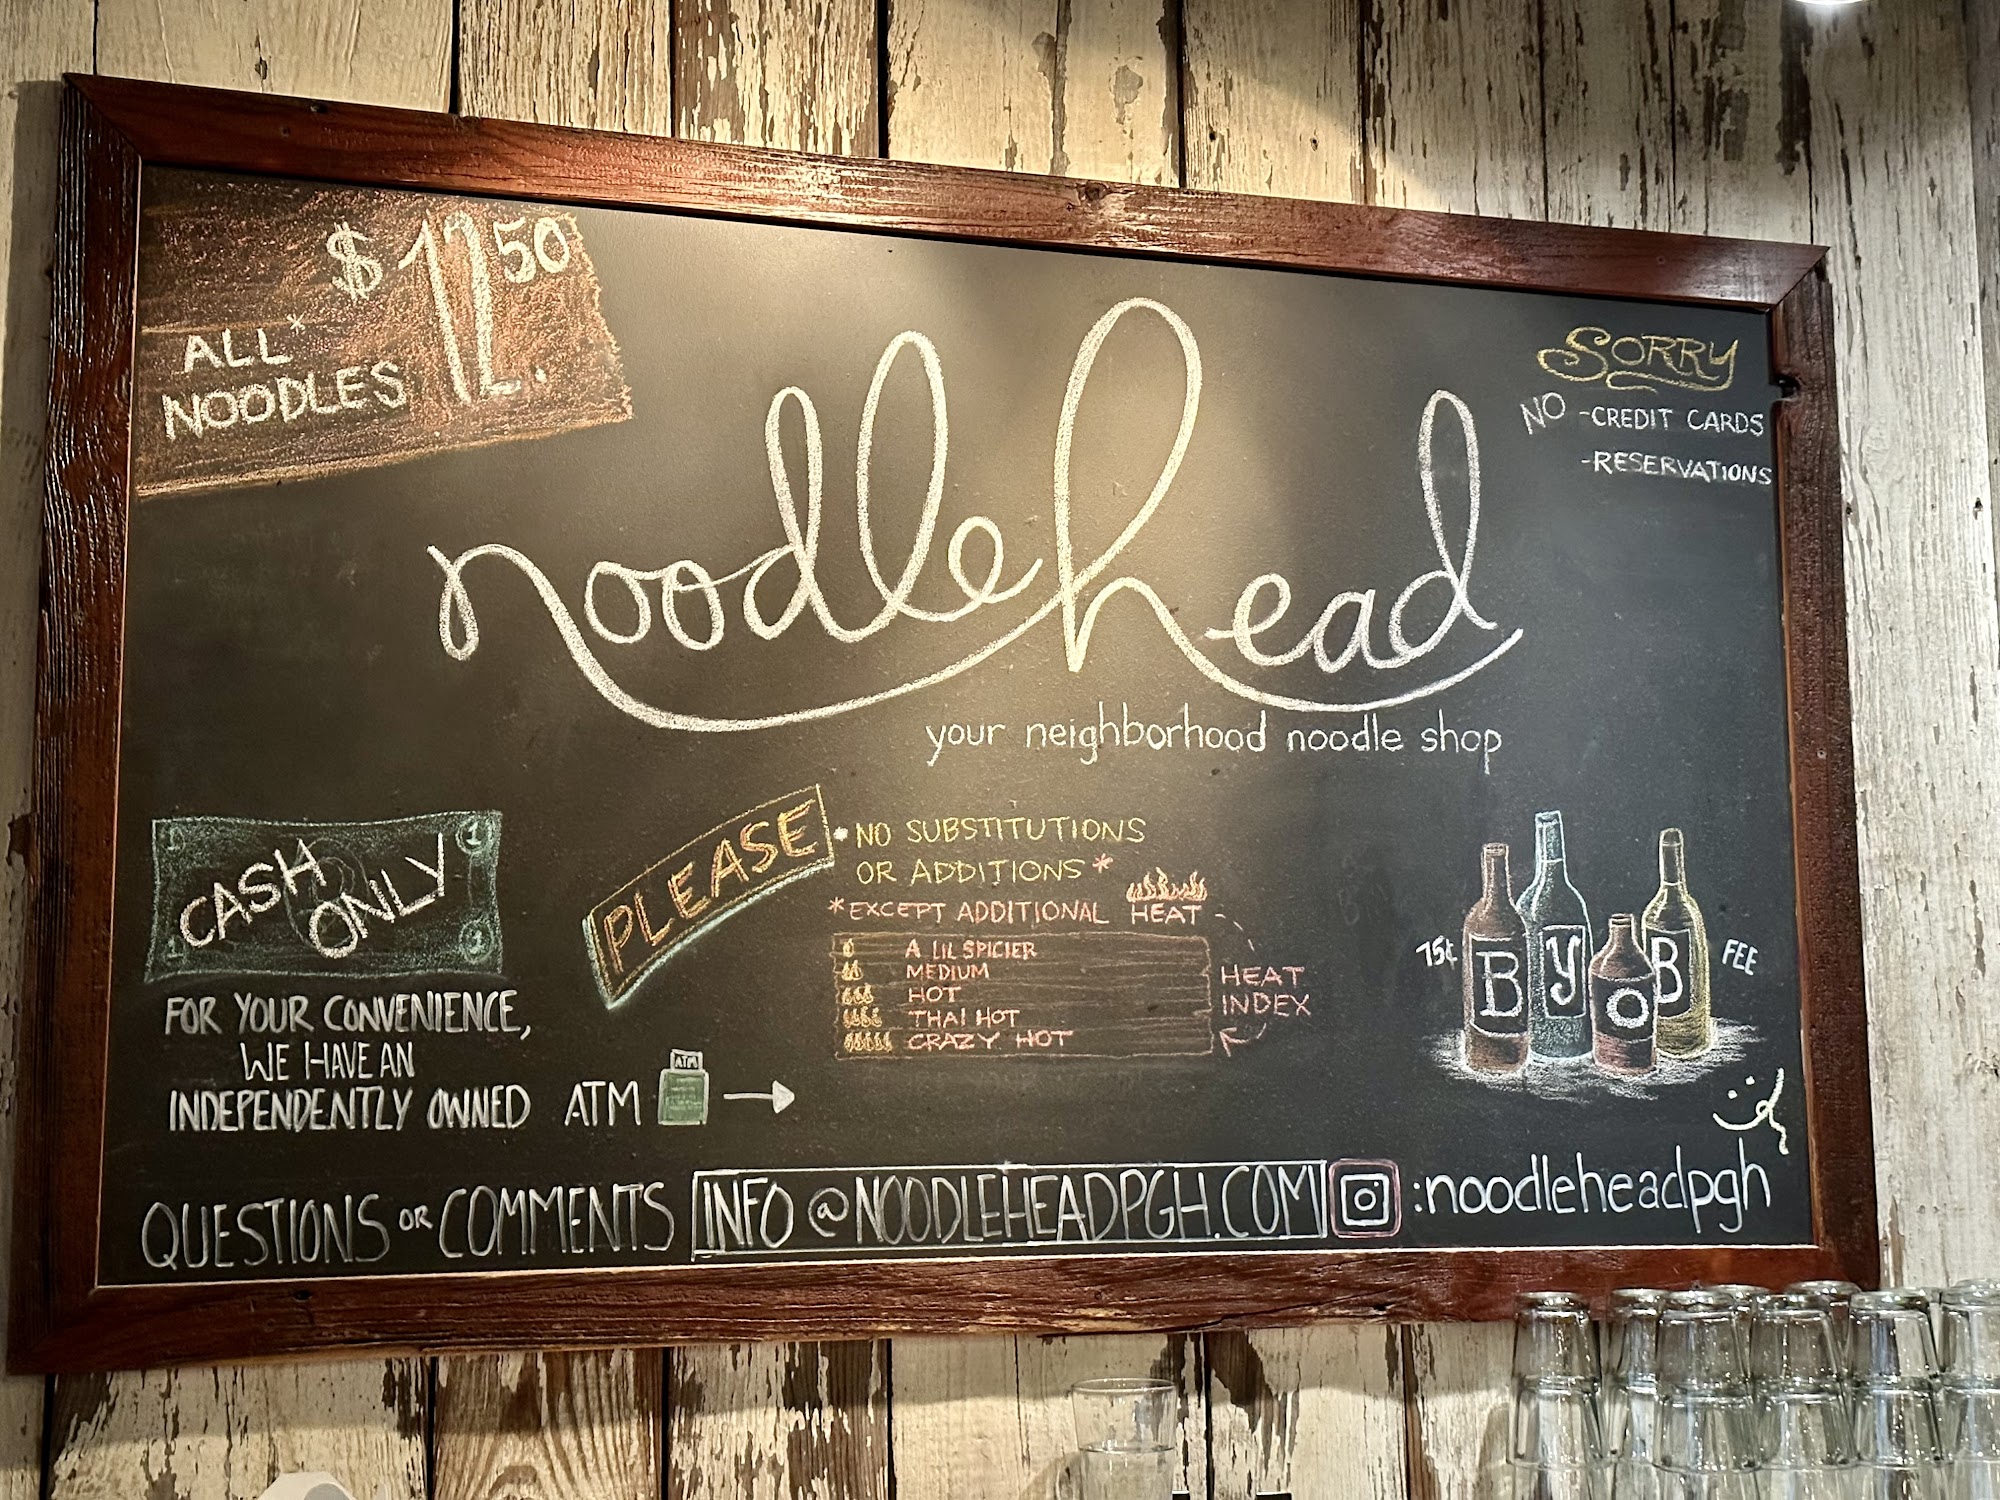 $12.50
ALL*
NOODLES
SORRY
NO -CREDIT CARDS
-RESERVATIONS
noodlehead
your neighborhood noodle shop
1 1
CASH
ONLY
1
FOR YOUR CONVENIENCE,
WE HAVE AN
INDEPENDENTLY OWNED ATM
ATM
PLEASE
• NO SUBSTITUTIONS
OR ADDITIONS *
*EXCEPT ADDITIONAL HEAT -
A LIL SPICIER
MEDIUM
HOT
THAI HOT
CRAZY HOT
HEAT
INDEX
75¢ BYOB FEE
QUESTIONS OR COMMENTS INFO @NOODLEHEADPGH.COM :noodleheadpgh